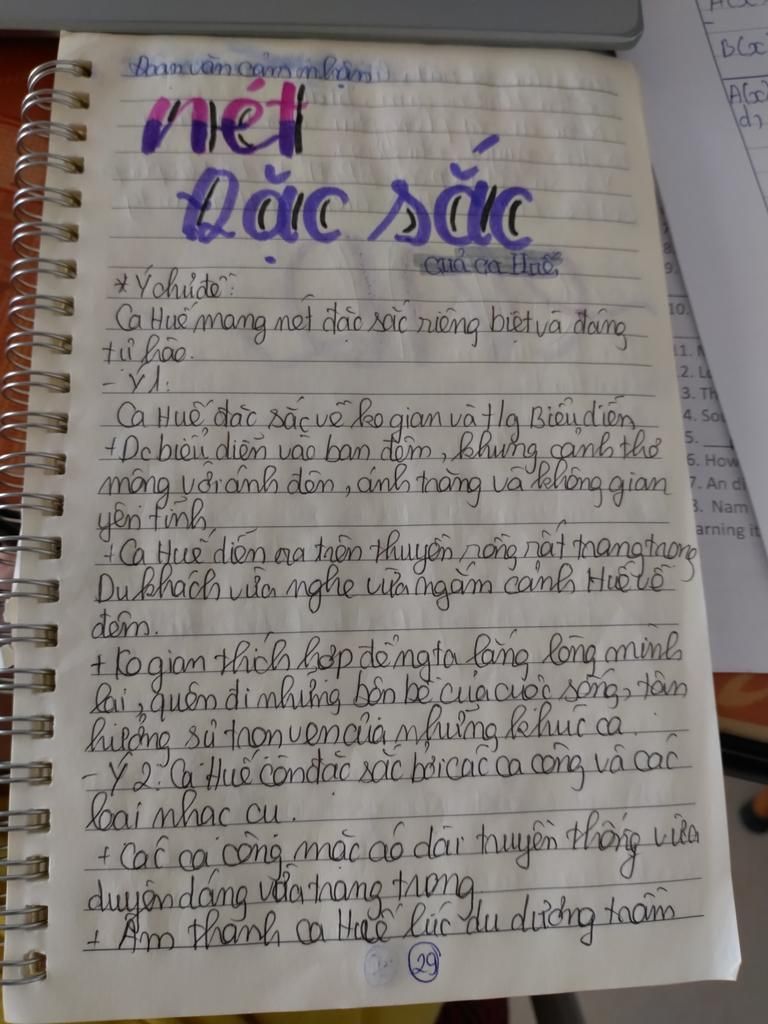 Đoạn văn cảm nhận
nét
Đặc sắc
của ca Huế
* Ý chủ đề:
Ca Huế mang nét đặc sắc riêng biệt và đáng
tự hào.
- Ý1:
Ca Huế đặc sắc về ko gian và tg Biểu diễn
+ Dc biểu diễn vào ban đêm, khung cảnh thơ
mộng với ánh đèn, ánh trăng và không gian
yên tĩnh,
+ Ca Huế diễn ra trên thuyền rồng rất trang trọng
Du khách vừa nghe vừa ngắm cảnh Huế về
đêm.
+ Ko gian thích hợp để ngta lắng lòng mình
lại, quên đi những bộn bề của cuộc sống, tận
hưởng sự trọn vẹn của những khúc ca.
- Ý 2: Ca Huế còn đặc sắc bởi các ca công và các
loại nhạc cụ.
+ Các ca công mặc áo dài truyền thống vừa
duyên dáng vừa trang trọng
+ Âm thanh ca Huế lúc du dương trầm
29
B(x)
A(x)
10.
2. L
3. Th
4. So
5.
6. How
7. An di
8. Nam
arning it